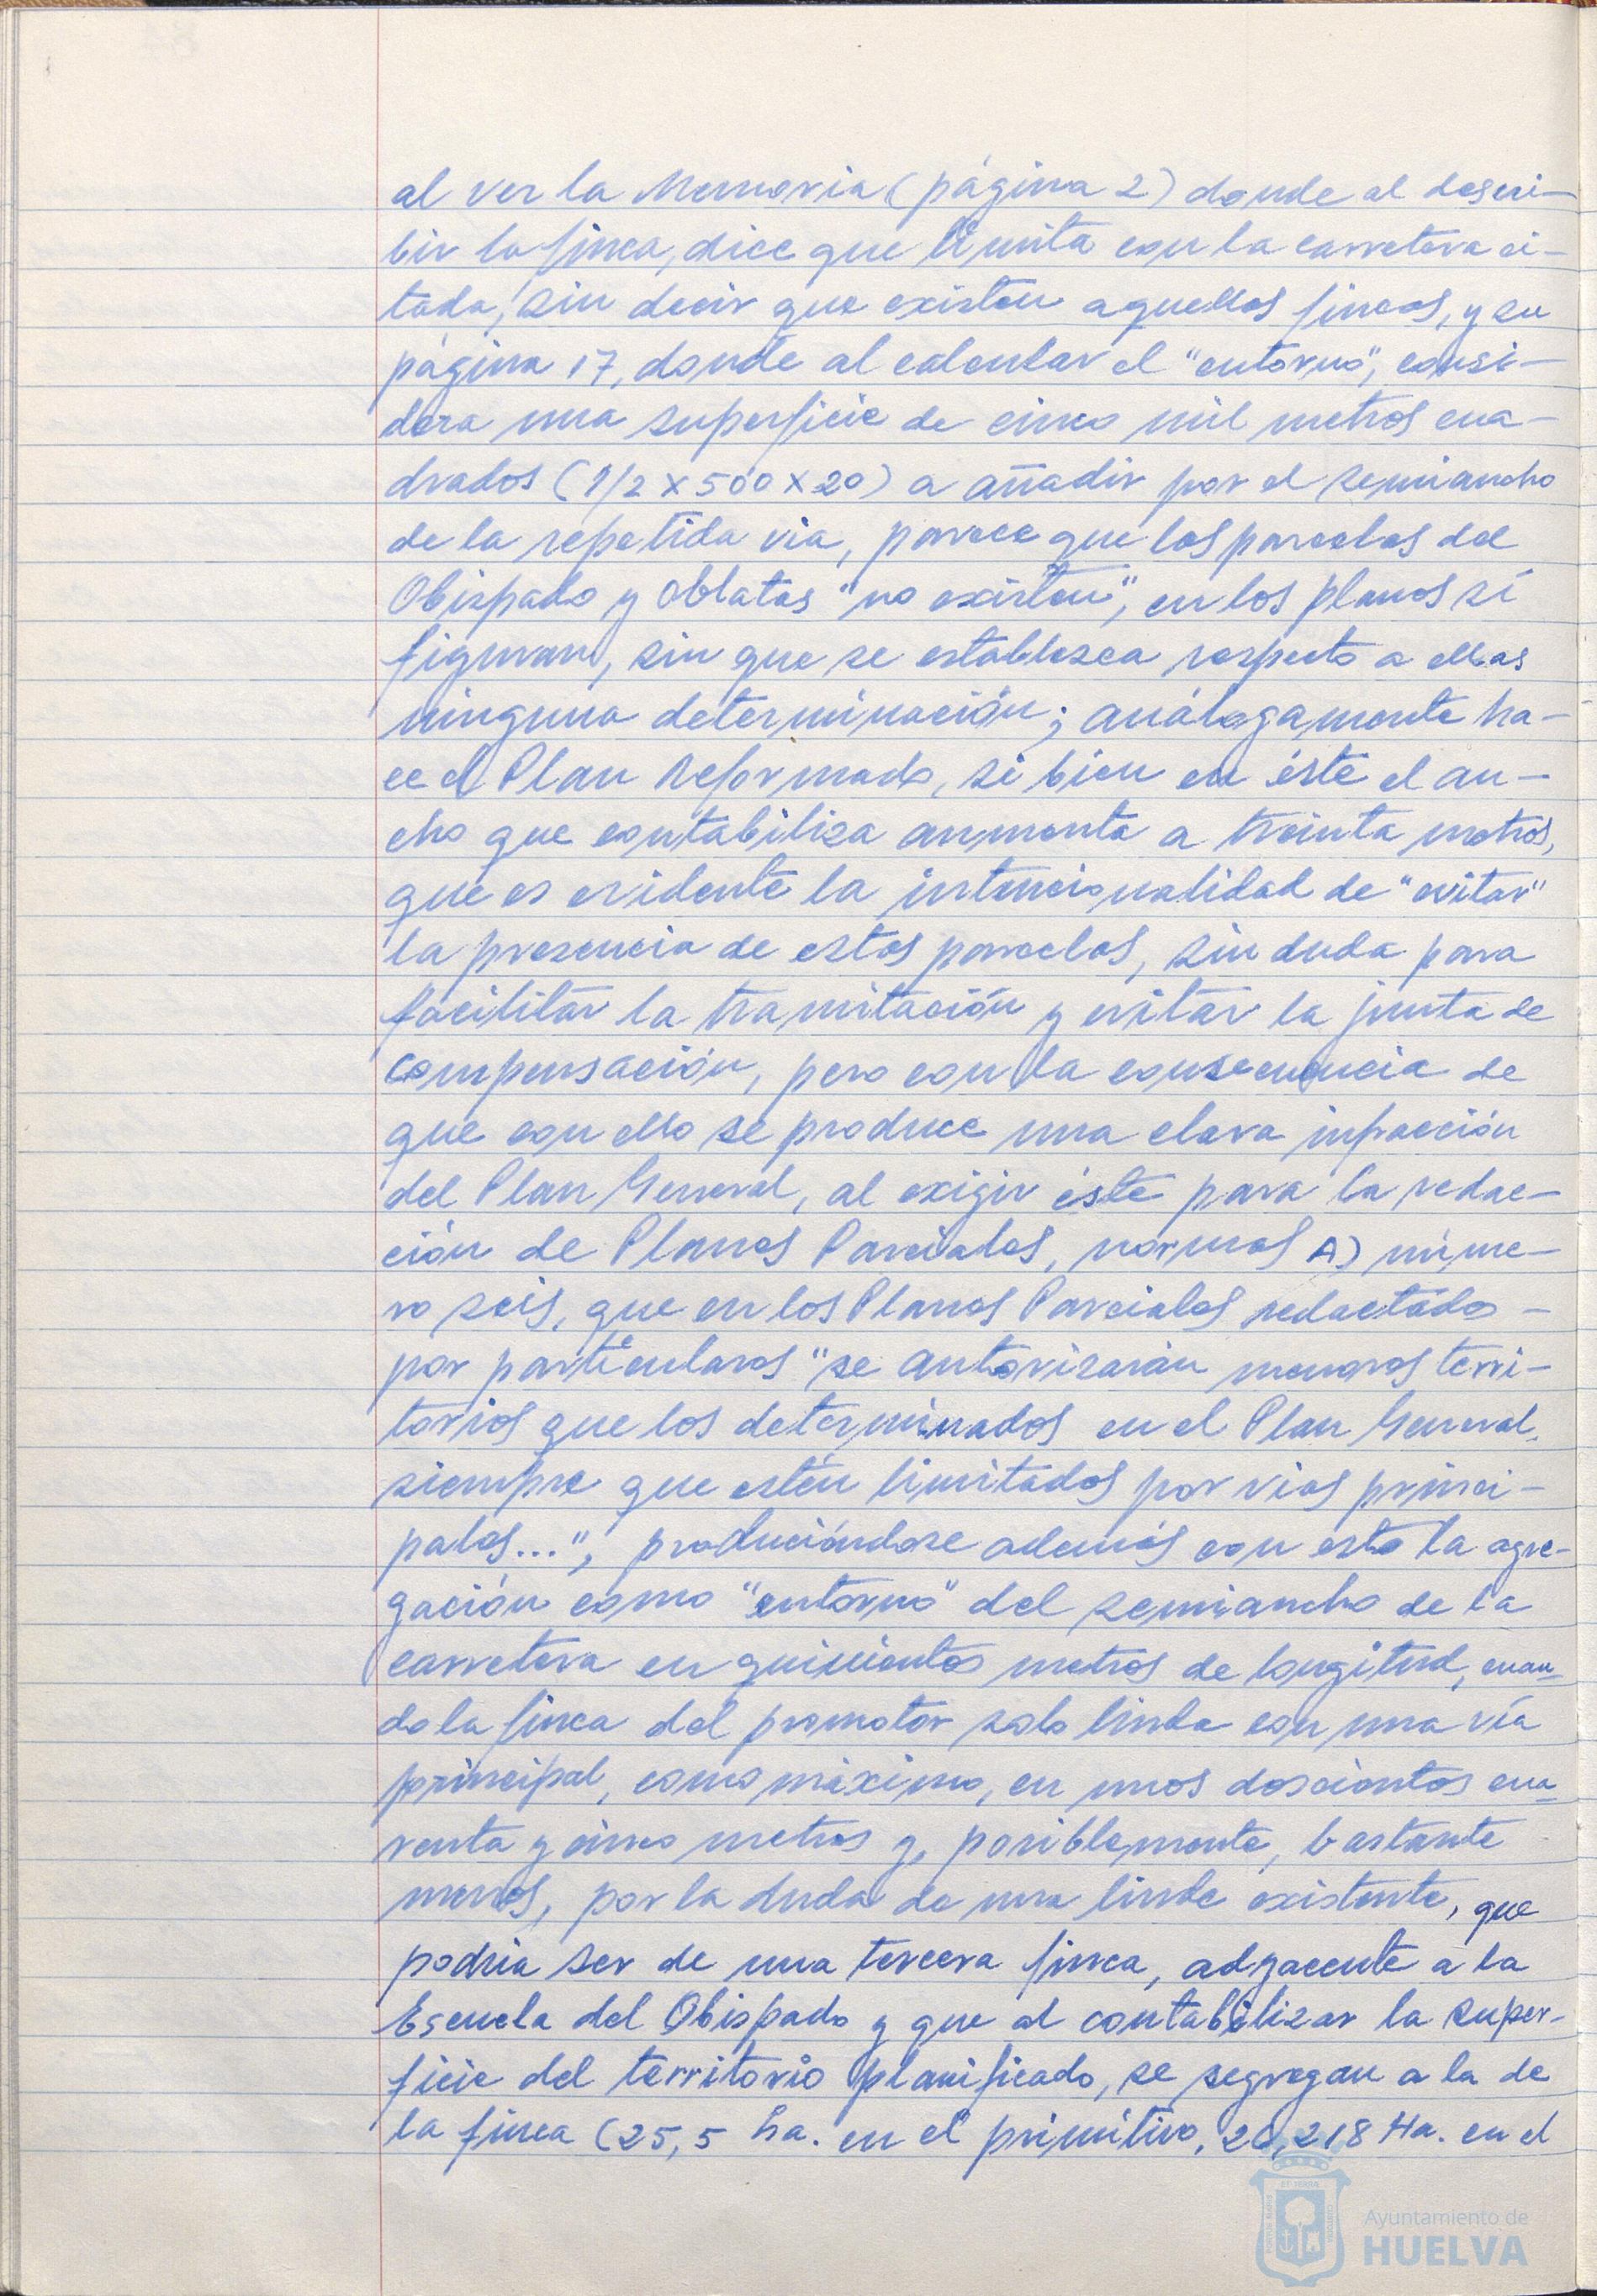 al ver la Memoria (página 2) donde al descri-
bir la finca, dice que limita con la carretera ci-
tada, sin decir que existen aquellas fincas, y su
página 17, donde al calcular el "entorno", consi-
dera una superficie de cinco mil metros cua-
drados (1/2 x 500 x 20) a añadir por el semiancho
de la repetida via, parece que las parcelas del
Obispado y Oblatas "no existen", en los planos sí
figuran, sin que se establezca respecto a ellas
ninguna determinación; análogamente ha-
ce el Plan Reformado, si bien en éste el an-
cho que contabiliza aumenta a treinta metros,
que es evidente la intencionalidad de "evitar"
la presencia de estas parcelas, sin duda para
facilitar la tramitación y evitar la junta de
compensación, pero con la consecuencia de
que con ello se produce una clara infracción
del Plan General, al exigir éste para la redac-
ción de Planes Parciales, normas A) núme-
ro seis, que en los Planes Parciales redactados -
por particulares "se autorizarán menores terri-
torios que los determinados en el Plan General,
siempre que estén limitados por vias princi-
pales...", produciéndose además con esto la agre-
gación como "entorno" del semiancho de la
carretera en quinientos metros de longitud, cuan-
do la finca del promotor solo linda con una vía
principal, como máximo, en unos doscientos cua-
renta y cinco metros y, posiblemente, bastante
menos, por la duda de una linde existente, que
podria ser de una tercera finca, adyacente a la
Escuela del Obispado y que al contabilizar la super-
ficie del territorio planificado, se segregan a la de
la finca (25,5 ha. en el primitivo, 26,218 Ha. en el
Ayuntamiento de
HUELVA